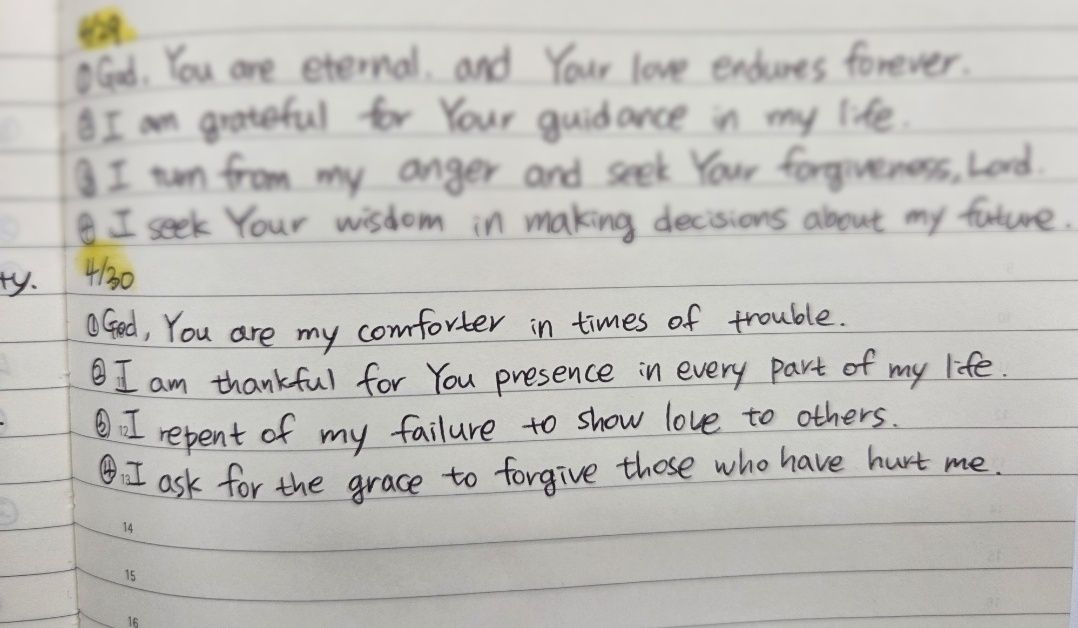 4/29
① God, You are eternal, and Your love endures forever.
② I am grateful for Your guidance in my life.
③ I turn from my anger and seek Your forgiveness, Lord.
④ I seek Your wisdom in making decisions about my future.
ty.
4/30
① God, You are my comforter in times of trouble.
② I am thankful for You presence in every part of my life.
③ I repent of my failure to show love to others.
④ I ask for the grace to forgive those who have hurt me.
14
15
16